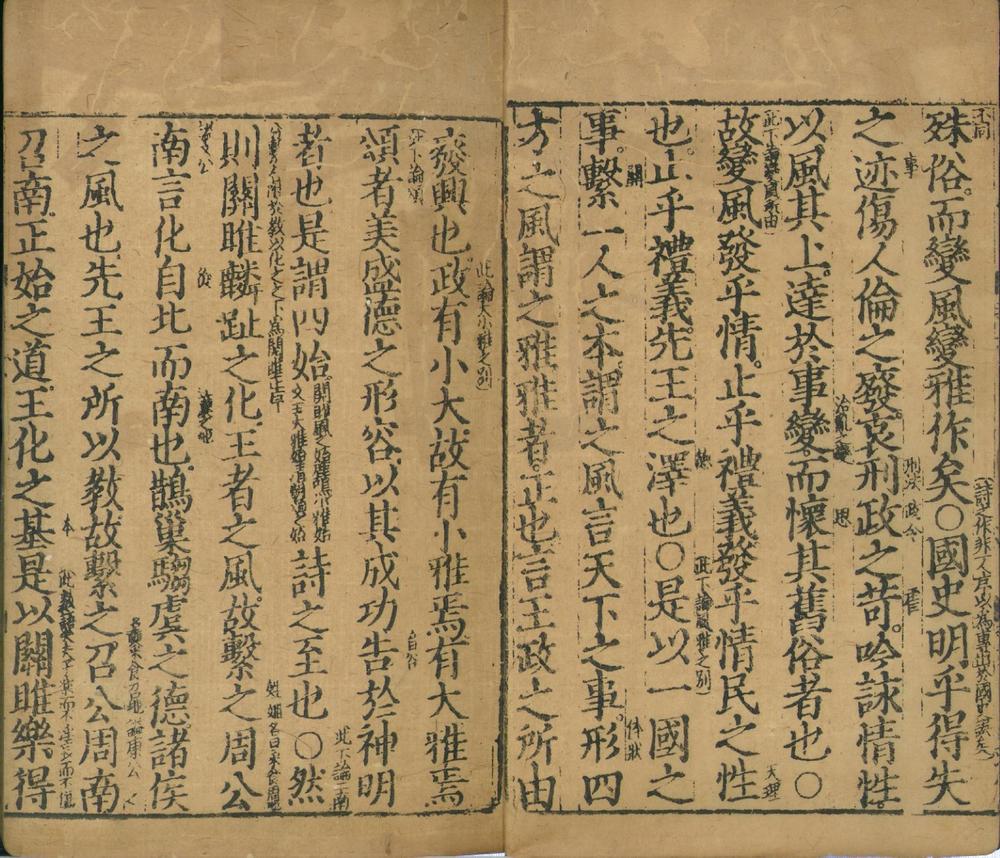 不同
殊俗。而變風變雅作矣○國史明乎得失
事
之迹傷人倫之廢。哀刑政之苛。吟詠情性。
治亂之變
刑法 政令
虐
以風其上。達於事變。而懷其舊俗者也○
思
故變風發乎情。止乎禮義。發乎情民之性
天理
也。止乎禮義。先王之澤也○是以一國之
此下論風雅之別
關
事。繫一人之本。謂之風言天下之事。形四
体狀
方之風。謂之雅。雅者。正也言王政之所由
此論大小雅之別
廢興也。政有小大。故有小雅焉。有大雅焉
此下論頌
頌者美盛德之形容以其成功告於神明
告
者也是謂四始詩之至也○然
此下論二南
則關雎麟趾之化王者之風故繫之周公
南言化自北而南也鵲巢騶虞之德諸侯
之風也先王之所以教故繫之召公周南
本
召南正始之道王化之基是以關雎樂得